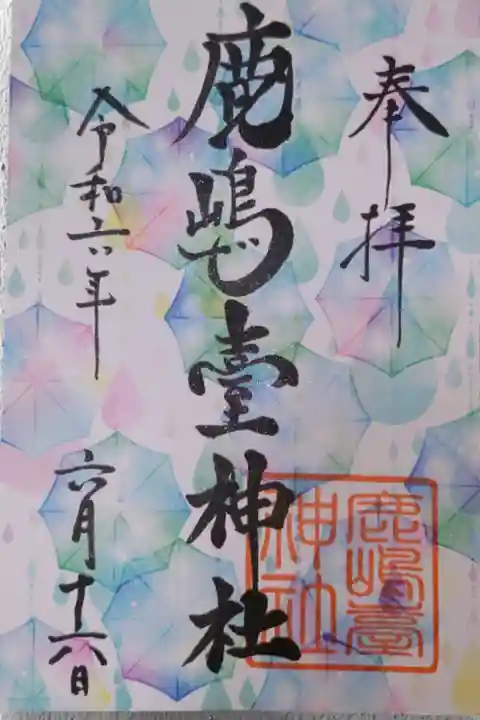 奉拝
鹿嶋臺神社
鹿嶋臺
神社
令和六年
六月十六日